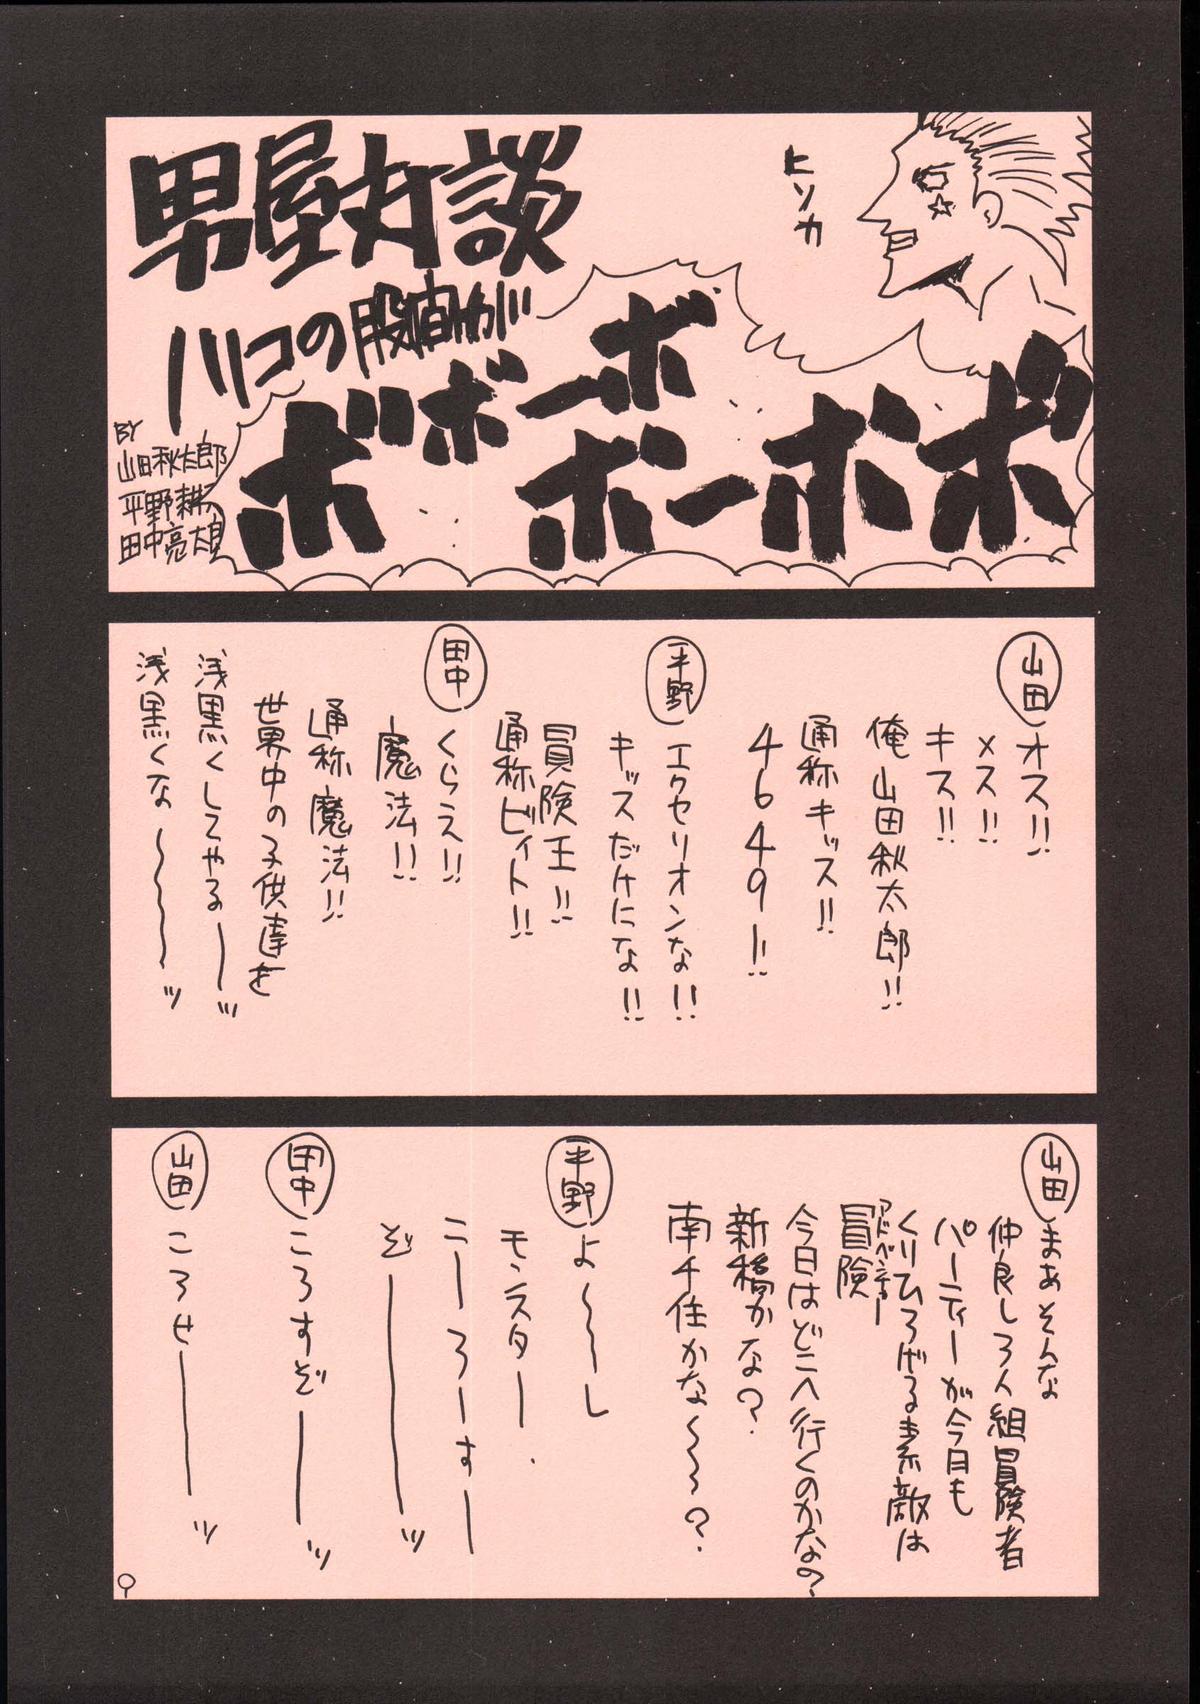 男屋対談
パコの股間が
ボボボーボ
ボーボボ
ヒソカ
BY
山田秋太郎
平野耕太
田中亮太
山田
オス!!
メス!!
キス!!
俺山田秋太郎!!
通称キッス!!
4649ー!!
平野
エクセリオンな!!
キッスだけにな!!
冒険王!!
通称ビィト!!
田中
くらえ!!
魔法!!
通称魔法!!
世界中の子供達を
浅黒くしてやるーーッ
浅黒くな〜〜〜ッ
山田
まあそんな
仲良し3人組冒険者
パーティーが今日も
くりひろげる素敵な
冒険
アドベンチャー
今日はどこへ行くのかな?
新橋かな?
南千住かな〜〜?
平野
よ〜〜し
モンスター
こーろーすー
ぞーーーッ
田中
ころすぞーーーッ
山田
ころせーーーッ